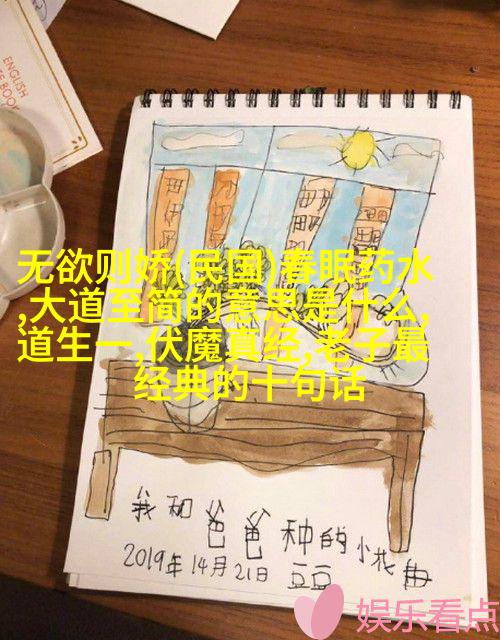 ENGLISH
E BOOK
无欲则娇(民国)春眠药水
,大道至简的意思是什么,
道生一,伏魔真经,老子最
经典的十句话
我和爸爸种的小
2019年14月21日 豆豆
娱乐看点